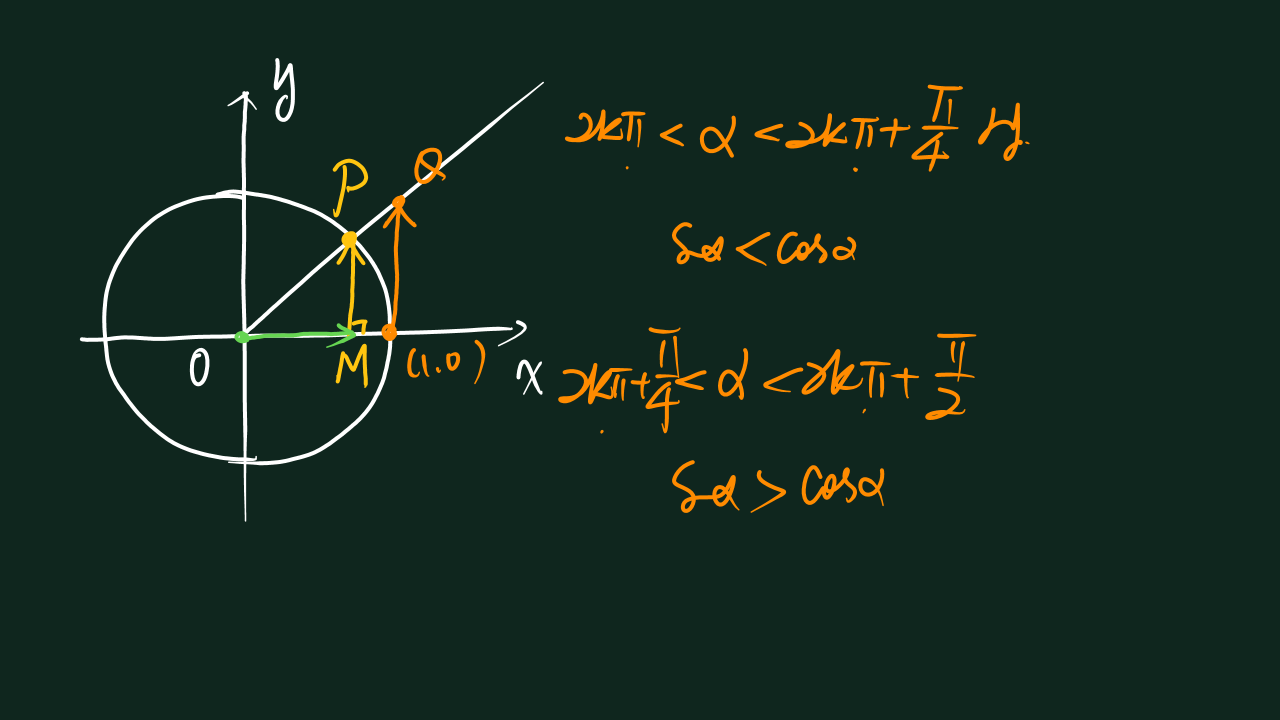 y
P
Q
O
M
(1.0)
x
2kπ < α < 2kπ + π/4 时.
Sα < cosα
2kπ + π/4 < α < 2kπ + π/2
Sα > cosα